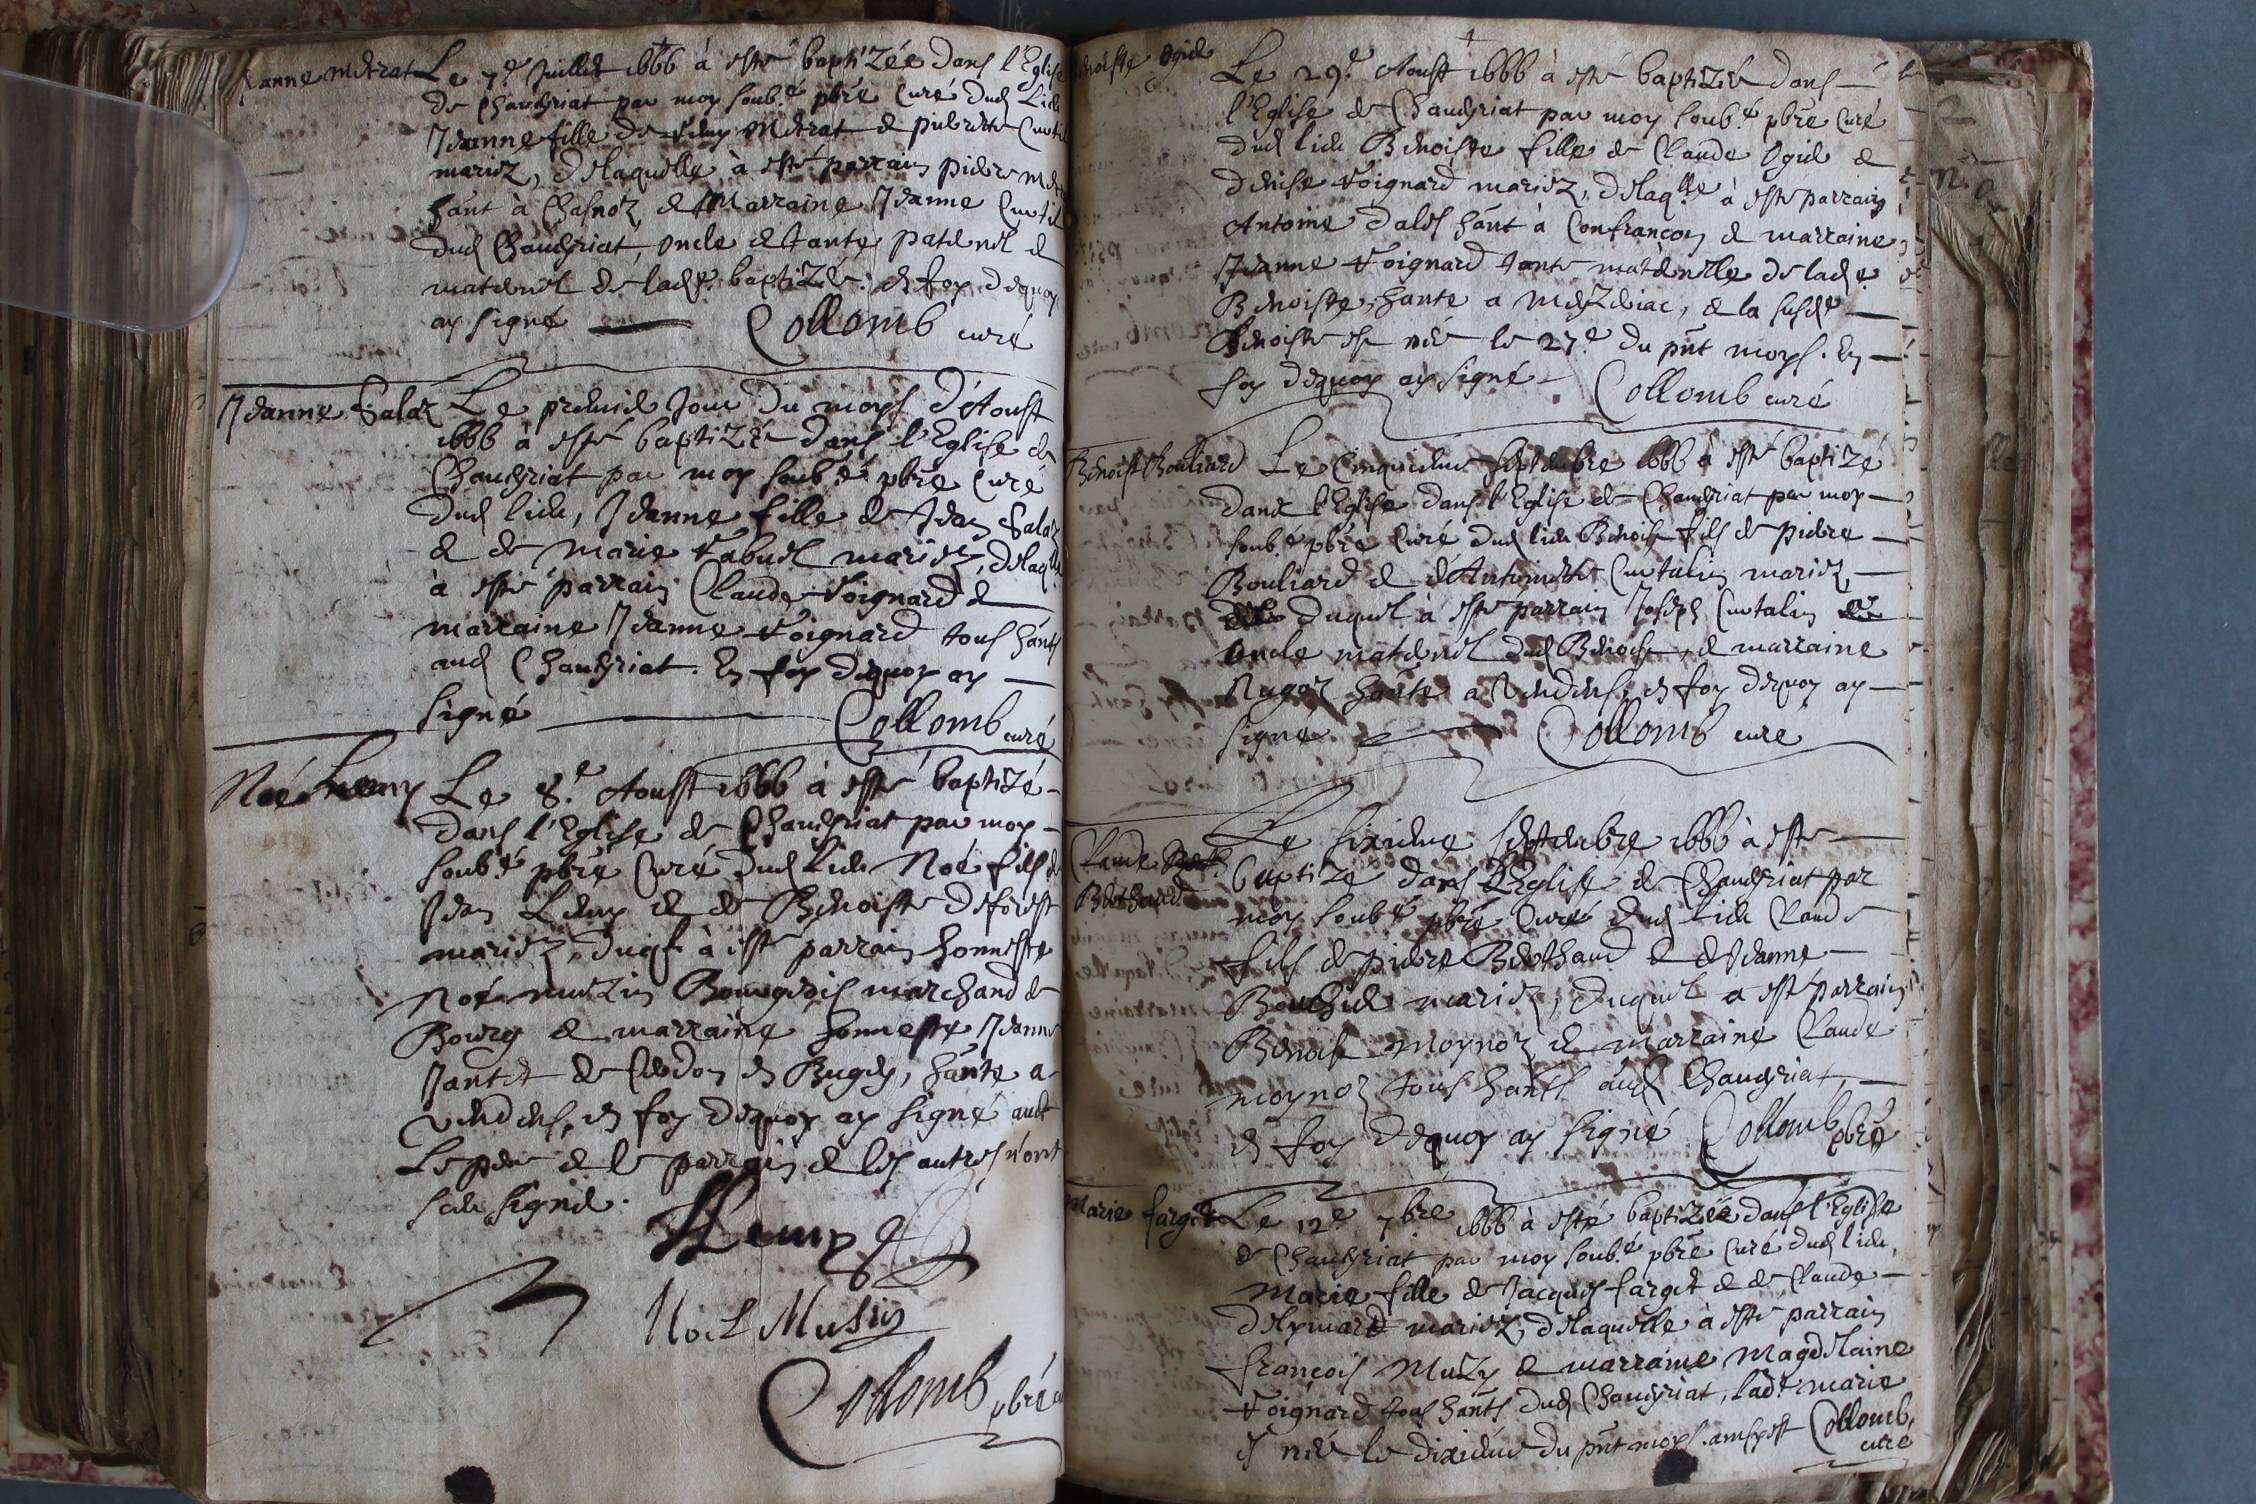 Jeanne Metrat
Le 7e Juillet 1666 à esté baptizée dans l'Eglise
de Chaveyriat par moy soub.é pbre Curé dud Lieu
Jeanne fille de Metrat & pierrette
mariez, delaquelle à esté parrain pierre
hant à & Marraine Jeanne
dud Chaveyriat, oncle & tante paternel &
maternel de lade baptizée. en foy dequoy
ay signé Collomb curé
Jeanne Salaz
Le premier Jour du moys d'Aoust
1666 à esté baptizée dans l'Eglise de
Chaveyriat par moy soub.é pbre Curé
dud lieu, Jeanne fille de Jean Salaz
& de Marie mariez, delaqlle
à esté parrain Claude Voignard &
marraine Jeanne Voignard tous hants
aud Chaveyriat. En foy dequoy ay
signé Collomb curé
Noé Lemp
Le 8.e Aoust 1666 à esté baptizé
dans l'Eglise de Chaveyriat par moy
soub.é pbre Curé dud Lieu Noé fils de
Jean Lemp & de Benoiste deforest
mariez, duql à esté parrain honneste
Noé Bourgeois marchand de
Bourg & marraine honneste Jeanne
Jantet de Cerdon en Bugey, hante a
Vendens, en foy dequoy ay signé avec
Le pere & le parrain & les autres n'ont
sceu signer.
Lemp
Noel Musin
Collomb pbre
Benoiste Ogier
Le 29.e Aoust 1666 à esté baptizée dans
l'Eglise de Chaveyriat par moy soub.é pbre Curé
dud lieu Benoiste fille de Claude Ogier &
denise Voignard mariez, delaqlle à esté parrain
Antoine hant à Confrançon & marraine
Jeanne Voignard tante maternelle de lade
Benoiste, hante a Mezeriac, & la susde
Benoiste est née le 27.e du pnt moys. En
foy dequoy ay signé Collomb curé
Benoist Bouliard
Le Cinquieme septembre 1666 à esté baptizé
dans l'Eglise dans l'Eglise de Chaveyriat par moy
soub.é pbre Curé dud lieu Benoist fils de pierre
Bouliard & d'Antoinette Curtalin mariez,
duquel à esté parrain Joseph Curtalin
oncle maternel dud Benoist, & marraine
hante a Vendens, en foy dequoy ay
signé Collomb curé
Claude
Berthaud
Le sixieme septembre 1666 à esté
baptizé dans l'Eglise de Chaveyriat par
moy soub.é pbre Curé dud lieu Claude
fils de pierre Berthaud & de Jeanne
mariez, duquel a esté parrain
Benoist moynoz & marraine Claude
moynoz tous hants aud Chaveyriat,
en foy dequoy ay signé Collomb pbre
Marie farget
Le 12e 7bre 1666 à esté baptizée dans l'Eglise
de Chaveyriat par moy soub.é pbre Curé dud lieu,
Marie fille de Jacques farget & de Claude
mariez, delaquelle à esté parrain
François & marraine Magdelaine
Voignard tous hants dud Chaveyriat, lade marie
est née le dixieme du pnt moys. Collomb,
curé